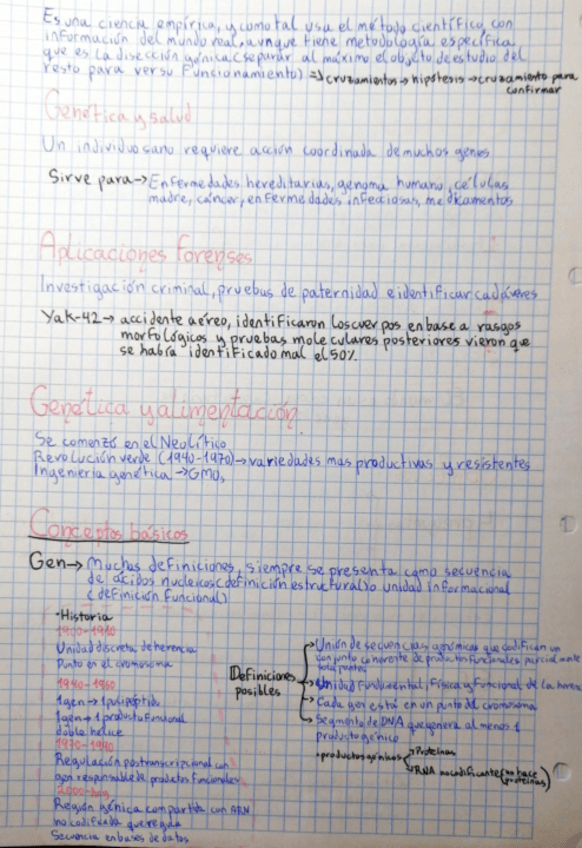 Es una ciencia empírica, y como tal usa el método científico, con
información del mundo real, aunque tiene metodología específica
que es la disección génica (separar al máximo el objeto de estudio del
resto para ver su funcionamiento) => cruzamientos → hipótesis → cruzamiento para
confirmar
Genética y salud
Un individuo sano requiere acción coordinada de muchos genes
Sirve para → Enfermedades hereditarias, genoma humano, células
madre, cáncer, enfermedades infecciosas, medicamentos
Aplicaciones forenses
Investigación criminal, pruebas de paternidad e identificar cadáveres
Yak-42 → accidente aéreo, identificaron los cuerpos en base a rasgos
morfológicos y pruebas moleculares posteriores vieron que
se había identificado mal el 50%.
Genética y alimentación
Se comenzó en el Neolítico
Revolución verde (1940-1970) → variedades mas productivas y resistentes
Ingeniería genética → GMOs
Conceptos básicos
Gen → Muchas definiciones, siempre se presenta como secuencia
de ácidos nucleicos (definición estructural) o unidad informacional
(definición funcional)
• Historia
1900-1940
Unidad discreta de herencia
Punto en el cromosoma
1940-1960
1 gen → 1 polipéptido
1 gen → 1 producto funcional
doble hélice
1970-1990
Regulación postranscripcional con
gen responsable de productos funcionales
2000-hoy
Región génica compartida con ARN
no codificada que regula
Secuencia en bases de datos
Definiciones
posibles
→ Unión de secuencias genómicas que codifican un
conjunto coherente de productos funcionales parcialmente
solapantes
→ Unidad fundamental, física y funcional de la herencia
→ Cada gen está en un punto del cromosoma
→ Segmento de DNA que genera al menos 1
producto génico
• productos génicos → Proteínas
→ RNA no codificante (no hace
proteínas)